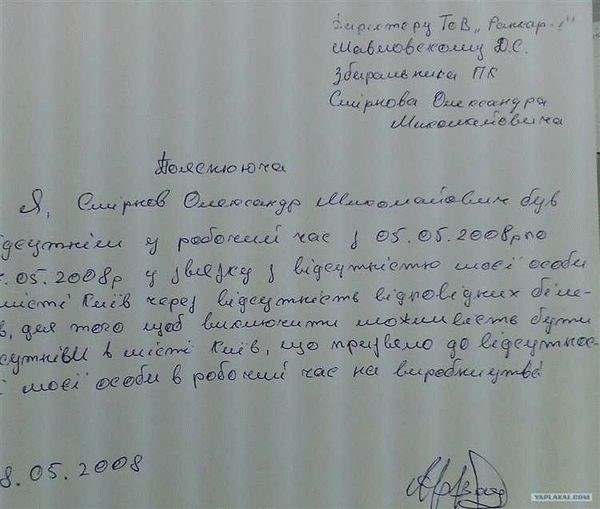 Директору ТОВ „Ранкар-
Шавловському Д.С.
Збиральника ПК
Смірнова Олександра
Миколайовича
Пояснююча
Я, Смірнов Олександр Миколайович був
ідсутнім у робочий час з 05.05.2008р по
.05.2008р у зв'язку з відсутністю моєї особи
місті Київ через відсутність відповідних біле-
в, для того щоб виключити можливість бути
сутнім в місті Київ, що призвело до відсутнос-
і моєї особи в робочий час на виробництві
8.05.2008
YAPLAKAL.COM